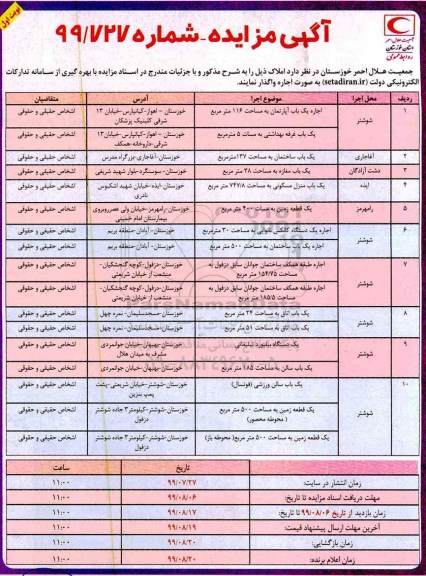 نوبت اول
جمعیت هلال احمر
استان خوزستان
روابط عمومی
آگهی مزایده - شماره ۹۹/۷۲۷
جمعیت هلال احمر خوزستان در نظر دارد املاک ذیل را به شرح مذکور و با جزئیات مندرج در اسناد مزایده با بهره گیری از سامانه تدارکات
الکترونیکی دولت (setadiran.ir) به صورت اجاره واگذار نمایند.
ردیف محل اجرا موضوع اجرا آدرس متقاضیان
۱ شوشتر اجاره یک باب آپارتمان به مساحت ۱۱۶ متر مربع خوزستان - اهواز-کیانپارس-خیابان ۱۳ شرقی کلینیک پزشکان اشخاص حقیقی و حقوقی
یک باب غرفه بهداشتی به مساحت ۵ مترمربع خوزستان - اهواز-کیانپارس-خیابان ۱۳ شرقی-داروخانه-همکف اشخاص حقیقی و حقوقی
۲ آغاجاری یک باب ساختمان به مساحت ۱۳۷مترمربع خوزستان-آغاجاری-بزرگراه مدرس اشخاص حقیقی و حقوقی
۳ دشت آزادگان یک باب مغازه به مساحت ۳۸ متر مربع خوزستان- سوسنگرد-بلوار شهید شریفی اشخاص حقیقی و حقوقی
۴ ایذه یک باب منزل مسکونی به مساحت ۷۴۷/۸ متر مربع خوزستان-ایذه-خیابان شهید اشکبوس نامری اشخاص حقیقی و حقوقی
۵ رامهرمز یک قطعه زمین به مساحت ۴۰۰ متر مربع خوزستان-رامهرمز-خیابان ولی عصرروبروی بیمارستان امام خمینی اشخاص حقیقی و حقوقی
۶ شوشتر اجاره یک دستگاه کانکس نانوایی به مساحت ۳۰ مترمربع خوزستان- آبادان-منطقه بریم اشخاص حقیقی و حقوقی
اجاره یک باب ساختمان به مساحت ۵۰۰ متر مربع خوزستان- آبادان-منطقه بریم اشخاص حقیقی و حقوقی
۷ شوشتر اجاره طبقه همکف ساختمان جوانان سابق دزفول به مساحت ۱۵۴/۷۵ متر مربع خوزستان-دزفول-کوچه گنجشکیان-منشعب از خیابان شریعتی اشخاص حقیقی و حقوقی
اجاره طبقه همکف ساختمان جوانان سابق دزفول به مساحت ۱۸۵/۵ متر مربع خوزستان-دزفول-کوچه گنجشکیان-منشعب از خیابان شریعتی اشخاص حقیقی و حقوقی
۸ شوشتر یک باب اتاق به مساحت ۲۴ متر مربع خوزستان-مسجدسلیمان- نمره چهل اشخاص حقیقی و حقوقی
یک باب اتاق به مساحت ۵۱ متر مربع خوزستان-مسجدسلیمان- نمره چهل اشخاص حقیقی و حقوقی
۹ شوشتر یک دستگاه بیلبورد تبلیغاتی خوزستان-بهبهان-خیابان جوانمردی مشرف به میدان هلال اشخاص حقیقی و حقوقی
یک باب سالن به مساحت ۱۸۵ متر مربع خوزستان-بهبهان-خیابان جوانمردی اشخاص حقیقی و حقوقی
۱۰ شوشتر یک باب سالن ورزشی (فوتسال) خوزستان-شوشتر-خیابان شریعتی-پشت پمپ بنزین اشخاص حقیقی و حقوقی
یک قطعه زمین به مساحت ۵۰۰ متر مربع ( محوطه محصور) خوزستان-شوشتر-کیلومتر۳ جاده شوشتر دزفول اشخاص حقیقی و حقوقی
یک قطعه زمین به مساحت ۵۰۰ متر مربع( محوطه باز) خوزستان-شوشتر-کیلومتر۳ جاده شوشتر دزفول اشخاص حقیقی و حقوقی
تاریخ ساعت
زمان انتشار در سایت: ۹۹/۰۷/۲۷ ۱۱:۰۰
مهلت دریافت اسناد مزایده تا تاریخ: ۹۹/۰۸/۰۶ ۱۱:۰۰
زمان بازدید از تاریخ ۹۹/۰۸/۰۶ تا تاریخ: ۹۹/۰۸/۱۷ ۱۱:۰۰
آخرین مهلت ارسال پیشنهاد قیمت: ۹۹/۰۸/۱۹ ۱۱:۰۰
زمان بازگشایی: ۹۹/۰۸/۲۰ ۱۱:۰۰
زمان اعلام برنده: ۹۹/۰۸/۲۰ ۱۱:۰۰